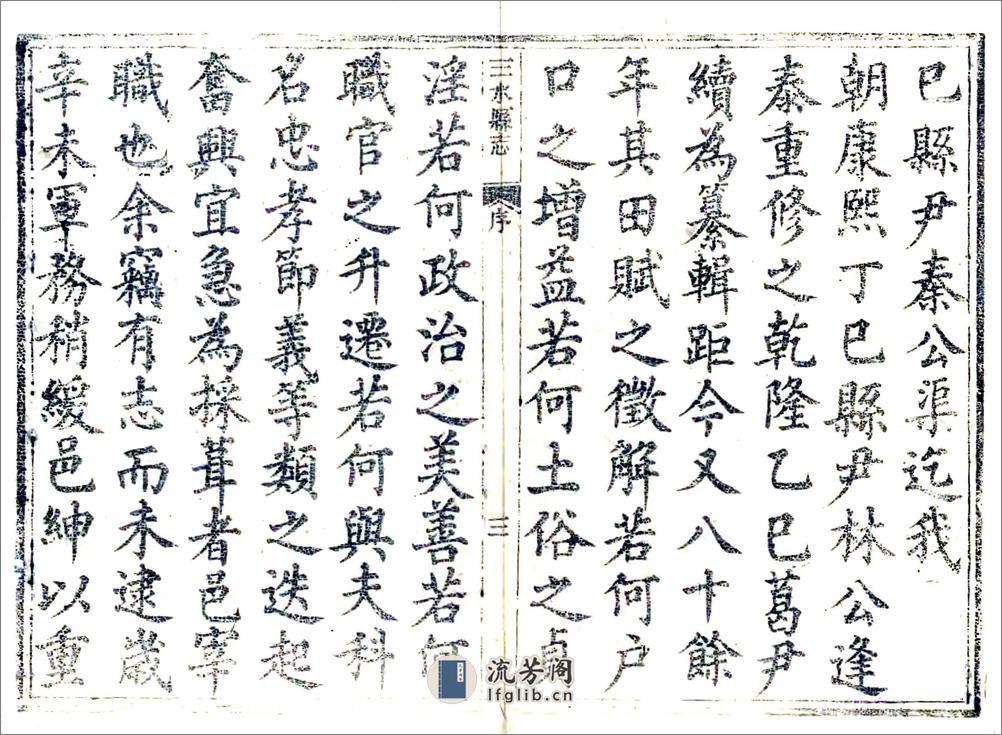 巳縣尹秦公渠迄我
朝康熙丁巳縣尹林公逢
泰重修之乾隆乙巳葛尹
續為纂輯距今又八十餘
年其田賦之徵解若何户
口之增益若何土俗之貞
三水縣志
序
三
淫若何政治之美善若何
職官之升遷若何與夫科
名忠孝節義等類之迭起
奮興宜急為採葺者邑宰
職也余竊有志而未逮歲
辛未軍務稍緩邑紳以重
流芳阁
lfglib.cn